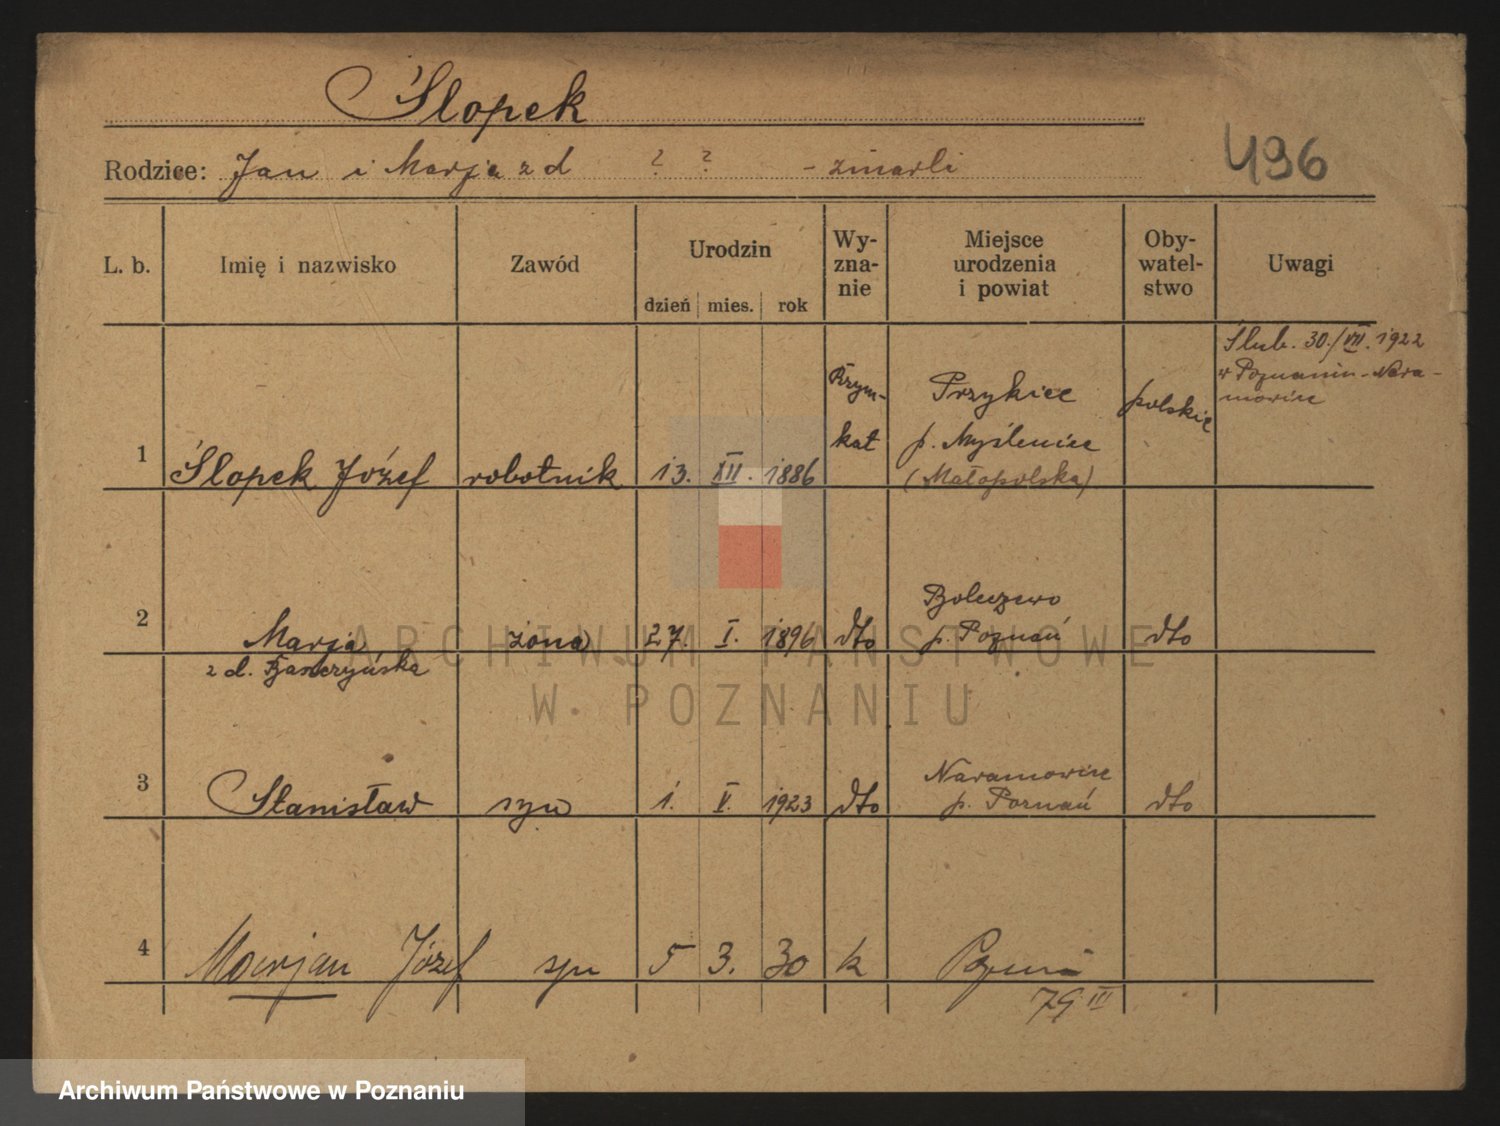 Ślopek
Rodzice: Jan i Marja z d ? ? - zmarli
496
L. b.
Imię i nazwisko
Zawód
Urodzin
dzień mies. rok
Wy-
zna-
nie
Miejsce
urodzenia
i powiat
Oby-
watel-
stwo
Uwagi
1
Ślopek Józef
robotnik
13. XII. 1886
Rzym-
kat
p. Myślenice
(Małopolska)
polskie
Ślub. 30./VII. 1922
w Poznaniu-Nara-
mowice
2
Marja
z d.
żona
27. I. 1896
dto
p. Poznań
dto
3
Stanisław
syn
1. V. 1923
dto
Naramowice
p. Poznań
dto
4
Marjan Józef
syn
5 3. 30
k
Poznań
79 III
ARCHIWUM PAŃSTWOWE
W POZNANIU
Archiwum Państwowe w Poznaniu